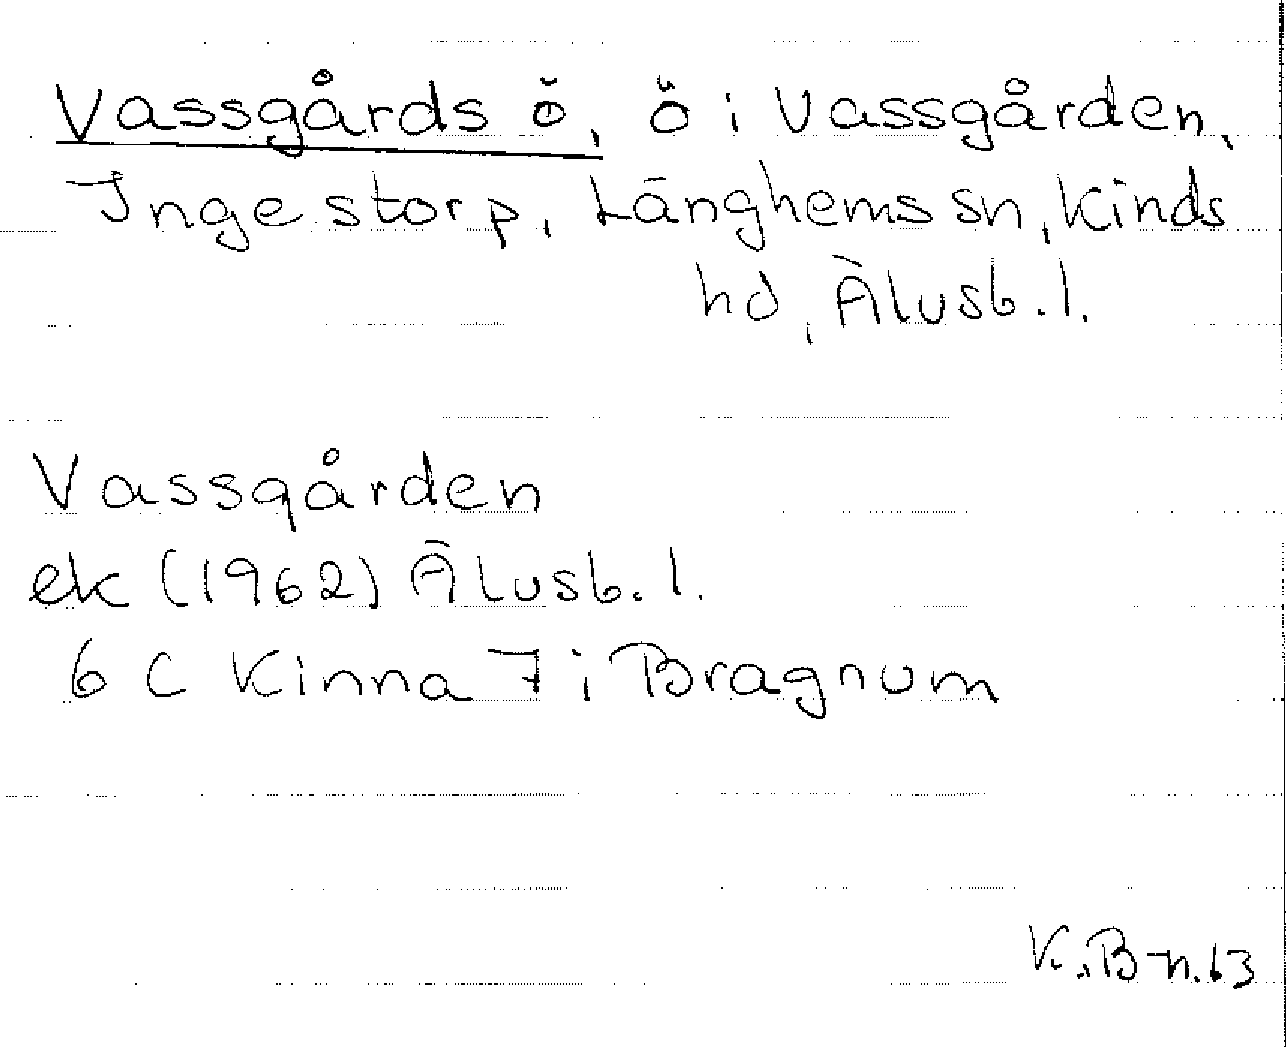 Vassgårds ö, ö i Vassgården,
Ingestorp, Länghems sn, Kinds
hd, Älvsb. l.
Vassgården
ek (1962) Älvsb. l.
6 C Kinna 7 i Bragnum
K.B-n.63